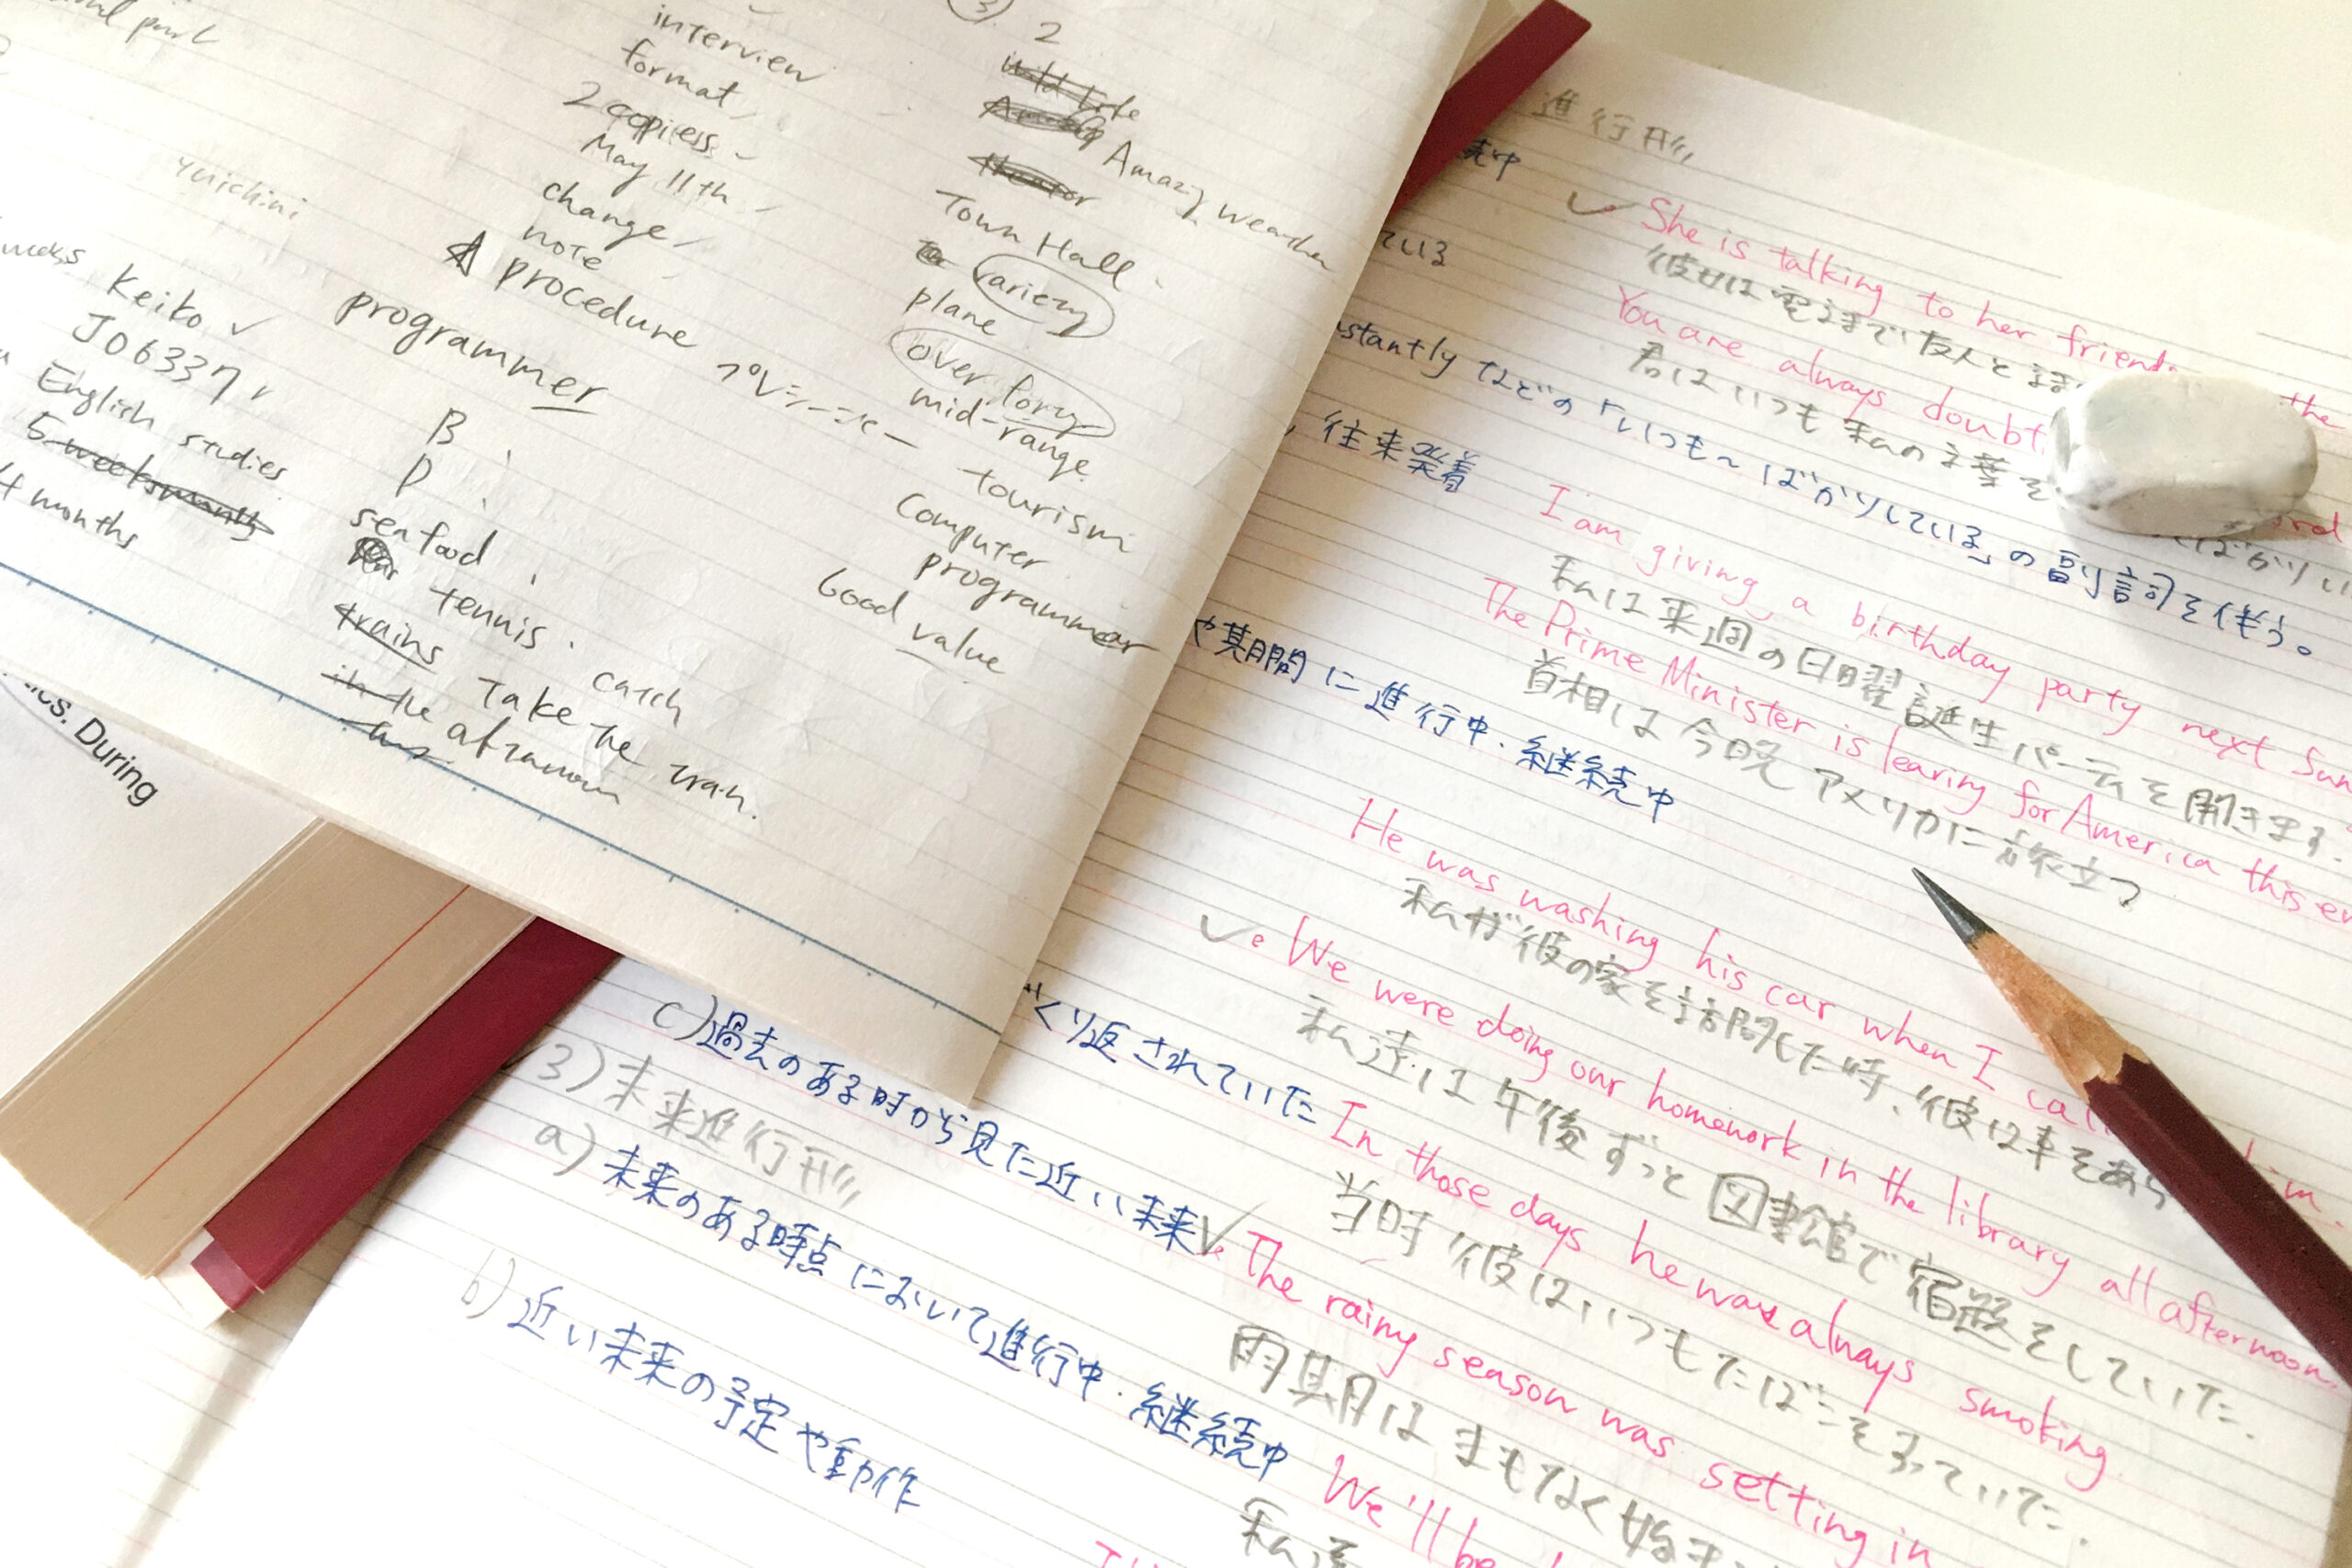 interview
format
2 copiess
May 11th
change
note
procedure
programmer
B
D
seafood
tennis.
trains Take the
catch
in the
2
Amazing weather
Town Hall
variety
plane
over forty
mid-range
tourism
Computer
programmer
Good value
yuichini
weeks
Keiko
J06337
English studies
5 weeks
4 months
During
進行形
続中
ている
She is talking to her friend
彼女は電話で友人と話
You are always doubt
君はいつも私の言葉を
stantly などの「いつも〜ばかりしている」の副詞を伴う。
往来発着
I am giving a birthday party next Sun
私は来週の日曜誕生パーティを開きます
The Prime Minister is leaving for America this ev
首相は今晩アメリカに旅立つ
や期間に進行中・継続中
He was washing his car when I cal
私が彼の家を訪問した時、彼は車をあら
We were doing our homework in the library all afternoon.
私達は午後ずっと図書館で宿題をしていた.
くり返されていた
In those days he was always smoking.
当時彼はいつもたばこをすっていた.
c)過去のある時から見た近い未来
The rainy season was setting in
雨期はまもなく始ま
3)未来進行形
a)未来のある時点において進行中・継続中
We'll be
私達
b)近い未来の予定や動作